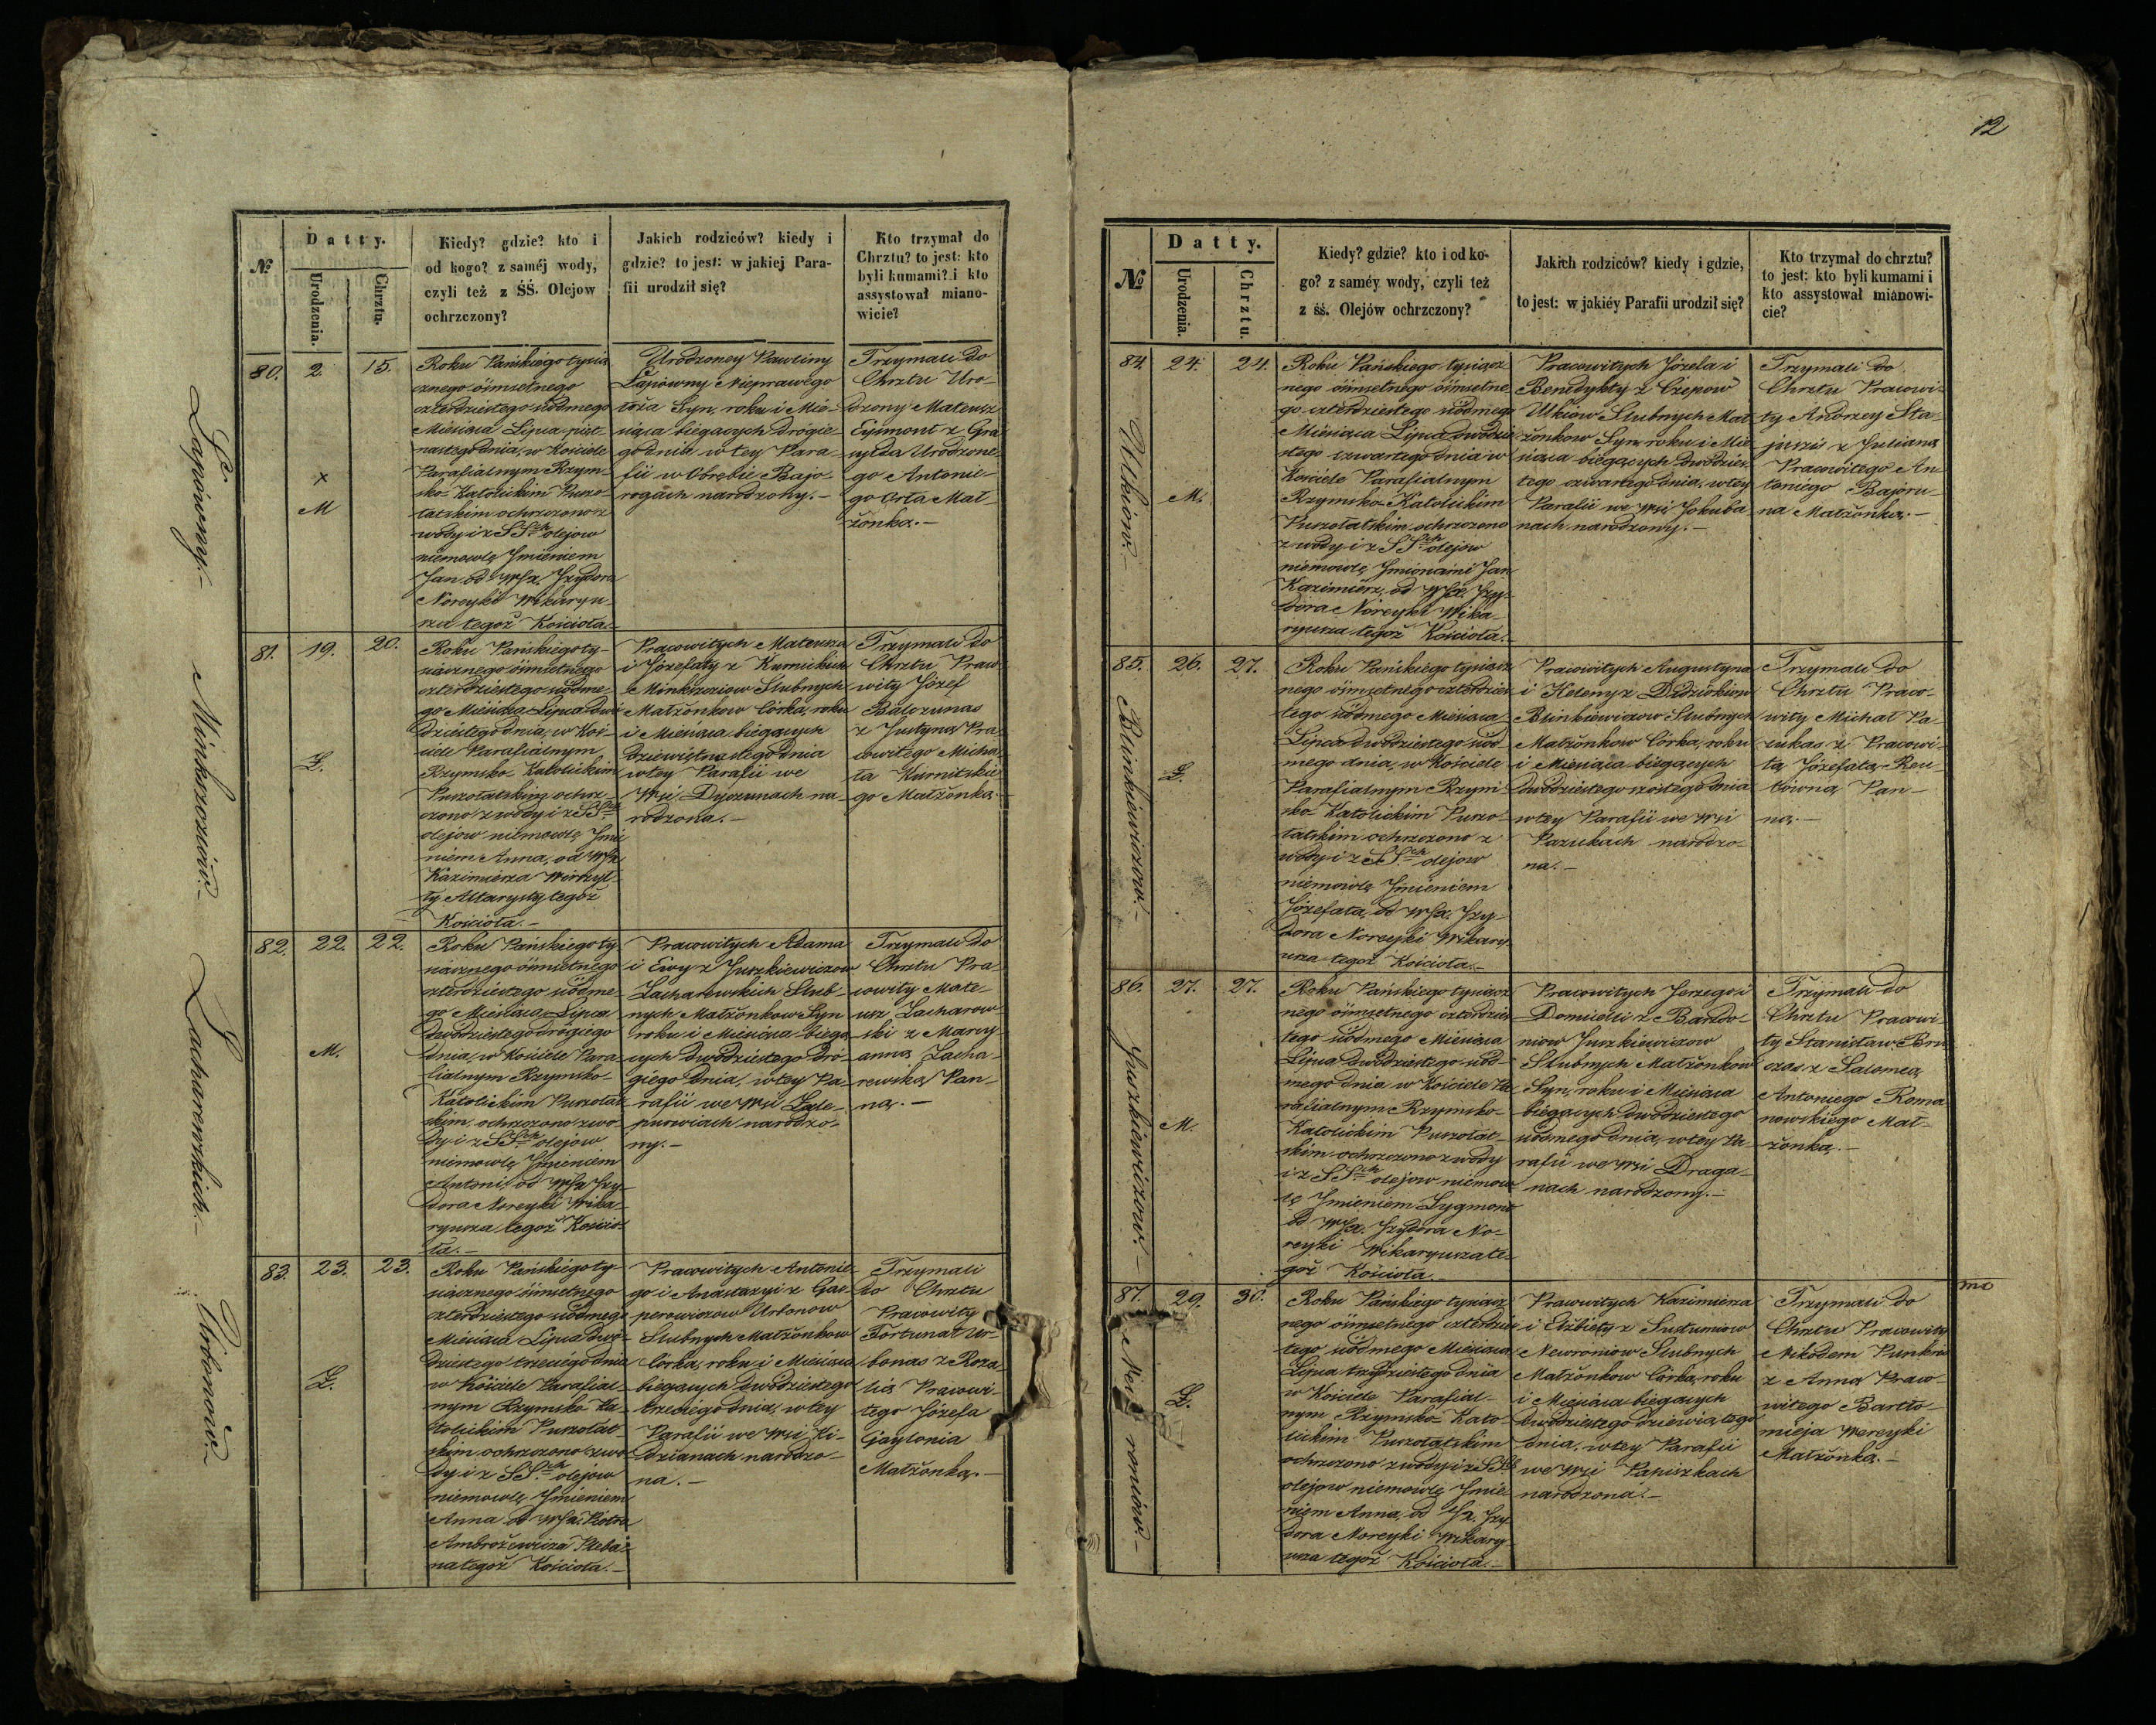 12
№
Datty.
Urodzenia.
Chrztu.
Kiedy? gdzie? kto i
od kogo? z saméj wody,
czyli też z ŚŚ. Olejow
ochrzczony?
Jakich rodziców? kiedy i
gdzie? to jest: w jakiej Para-
fii urodził się?
Kto trzymał do
Chrztu? to jest: kto
byli kumami? i kto
assystował miano-
wicie?
Łapówny.-
80.
2.
15.
×
M
Roku Pańskiego tysią
cznego ósmsetnego
czterdziestego siódmego
Miesiąca Lipca piet-
nastego dnia, w Kościele
Parafialnym Rzym-
sko-Katolickim Puszo-
łatskim ochrzczono z
wody i z SSch olejow
niemowlę Jmieniem
Jan od WJX. Jzydora
Noreyki Wikaryu-
sza tegoż Kościoła.-
Urodzoney Pawliny
Łapówny Nieprawego
łoża Syn, roku i Mie-
siąca biegących drógie-
go dnia, w tey Para-
fii w Obrębie Bajo-
rogach narodzony.-
Trzymali do
Chrztu Uro-
dzony Mateusz
Eysmont z
Urodzone-
go Antonie-
go Orła Mał-
żonką.-
Minkszcziów.-
81.
19.
20.
Ż.
Roku Pańskiego ty-
siącznego ósmsetnego
czterdziestego siódme-
go Miesiąca Lipca dwó
dziestego dnia, w Koś-
ciele Parafialnym
Rzymsko-Katolickim
Puszołatskim ochrz-
czono z wody i z SSch
olejow niemowlę Jmie
niem Anna, od WJX
Kazimierza
Altarysty tegoż
Kościoła.-
Pracowitych Mateusza
i Józefaty z Kurnickich
Minkszcziow Slubnych
Małżonkow Córka, roku
i Miesiąca biegących
dziewiętnastego dnia
w tey Parafii we
Wsi Dyczunach na-
rodzona.-
Trzymali do
Chrztu Praco
wity Józef
Balczunas
z Justyną Pra
cowitego Micha
ła Kurnitskie
go Małżonką.-
Zacharewskich.-
82.
22.
22.
M.
Roku Pańskiego ty-
siącznego ósmsetnego
czterdziestego siódme-
go Miesiąca Lipca
dwódziestego drógiego
dnia, w Kościele Para-
fialnym Rzymsko-
Katolickim Puszołat
skim, ochrzczono z wo-
dy i z SSch olejow
niemowlę Jmieniem
Antoni, od WJX Jzy-
dora Noreyki Wika-
ryusza tegoż Kościo-
ła.-
Pracowitych Adama
i Ewy z Juszkiewiczow
Zacharewskich Slub-
nych Małżonkow Syn
roku i Miesiąca biegą
cych dwódziestego dró-
giego dnia, w tey Pa-
rafii we Wsi Łale-
punwiach, narodzo-
ny.-
Trzymali do
Chrztu Pra-
cowity Mate-
usz Zacharow-
ski z Mary
anną Zacha-
rewską Pan-
ną.-
Urbonów.-
83.
23.
23.
Ż.
Roku Pańskiego ty
siącznego ósmsetnego
czterdziestego siódmego
Miesiąca Lipca dwó-
dziestego trzeciego dnia
w Kościele Parafial-
nym Rzymsko-Ka-
tolickim Puszołat-
skim, ochrzczono z wo-
dy i z SSch olejow
niemowlę Jmieniem
Anna od WJX. Piotra
Ambrożewicza Pleba-
na tegoż Kościoła.-
Pracowitych Antonie-
go i Anastazyi z Gas-
perowiczow Urbonow
Slubnych Małżonkow
Córka, roku i Miesiąca
biegących dwódziestego
trzeciego dnia, w tey
Parafii we Wsi Ki-
dżianach narodzo-
na.-
Trzymali
do Chrztu
Pracowity
Fortunat Ur-
bonas z Roza-
lią Pracowi-
tego Józefa
Gaylonia
Małżonką.-
№
Datty.
Urodzenia.
Chrztu.
Kiedy? gdzie? kto i od ko-
go? z saméy wody, czyli też
z śś. Olejów ochrzczony?
Jakich rodziców? kiedy i gdzie,
to jest: w jakiéy Parafii urodził się?
Kto trzymał do chrztu?
to jest: kto byli kumami i
kto assystował mianowi-
cie?
Utkiów.-
84.
24.
24.
M.
Roku Pańskiego tysiącz
nego ósmsetnego ósmsetne
go czterdziestego siódmego
Miesiąca Lipca dwódzie
stego czwartego dnia w
Kościele Parafialnym
Rzymsko-Katolickim
Puszołatskim, ochrzczono
z wody i z SSch olejow
niemowlę Jmionami Jan
Kazimierz, od WJX. Jzy-
dora Noreyki Wika-
ryusza tegoż Kościoła.-
Pracowitych Józefa i
Benedykty z Czepow
Utkiow Slubnych Mał
żonkow Syn, roku i Mie
siąca biegących dwódzies
tego czwartego dnia, w tey
Parafii we Wsi Jokuba
nach narodzony.-
Trzymali do
Chrztu Pracowi-
ty Andrzey Sta-
z Julianą
Pracowitego An-
toniego Bajoru-
na Małżonką.-
Blinkiewiczow.-
85.
26.
27.
Ż.
Roku Pańskiego tysiącz
nego ósmsetnego czterdzies
tego siódmego Miesiąca
Lipca dwódziestego siód-
mego dnia, w Kościele
Parafialnym Rzym-
sko-Katolickim Puszo-
łatskim ochrzczono z
wody i z SSch olejow
niemowlę Jmieniem
Józefata, od WJX. Jzy-
dora Noreyki Wikary
usza tegoż Kościoła.-
Pracowitych Augustyna
i Heleny z Dedziokiow
Blinkiewiczow Slubnych
Małżonkow Córka, roku
i Miesiąca biegących
dwódziestego szóstego dnia
w tey Parafii we Wsi
Pazukach narodzo-
na.-
Trzymali do
Chrztu Praco-
wity Michał Pa-
zukas z Pracowi-
tą Józefatą Reu-
tówną Pan-
ną.-
Juszkiewiczow.-
86.
27.
27.
M.
Roku Pańskiego tysiącz
nego ósmsetnego czterdzies
tego siódmego Miesiąca
Lipca dwódziestego siód-
mego dnia w Kościele Pa
rafialnym Rzymsko-
Katolickim Puszołat-
skim ochrzczono z wody
i z SSch olejow niemow
lę Jmieniem Zygmont
od WJX. Jzydora No-
reyki Wikaryusza te-
goż Kościoła.-
Pracowitych Jerzego i
Domicelli z Bardo-
niow Juszkiewiczow
Slubnych Małżonkow
Syn, roku i Miesiąca
biegących dwódziestego
siódmego dnia, w tey Pa
rafii we Wsi Draga-
nach narodzony.-
Trzymali do
Chrztu Pracowi-
ty Stanisław Bru
czas z Salomeą
Antoniego Roma
nowskiego Mał-
żonką.-
Newroniow.-
87.
29.
30.
Ż.
Roku Pańskiego tysiącz
nego ósmsetnego czterdzies
tego siódmego Miesiąca
Lipca trzydziestego dnia
w Kościele Parafial-
nym Rzymsko-Kato-
lickim Puszołatskim
ochrzczono z wody i z SSch
olejow niemowlę Jmie-
niem Anna, od WJX. Jzy
dora Noreyki Wikary
usza tegoż Kościoła.-
Pracowitych Kazimierza
i Elżbiety z Sustumiow
Newroniow Slubnych
Małżonkow Córka, roku
i Miesiąca biegących
dwódziestego dziewiątego
dnia, w tey Parafii
we Wsi Papiszkach
narodzona.-
Trzymali do
Chrztu Pracowity
Nikodem Punkris
z Anną Praco-
witego Bartło-
mieja Wereyki
Małżonką.-